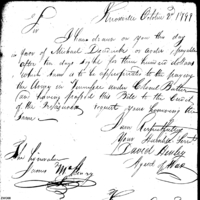 Knoxville October 2d 1799
Sir
I have drawn on you this day
in favor of Michael Dismukes or order payable
after ten days sight for three hundred dollars
which sum is to be appropriated to the paying
the Army in Tennessee under Colonel Butler
you having passed this Bill to the Credit
of the Treasurer request your honoring the
Same
I am Respectfully
Your Humble Servt
David Henley
Agent of War
The Honorable
James McHenry